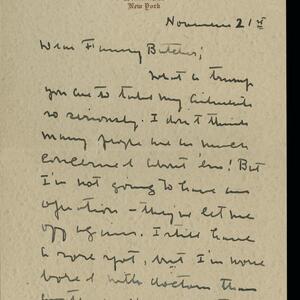 New York
November 21st
Dear Fanny Butcher;
What a trump
you are to take my ailments
so seriously. I don't think
many people are as much
concerned about 'em! But
I'm not going to have an
operation - they've let me
off again. I still have
a sore spot, but I'm more
bored with doctors than